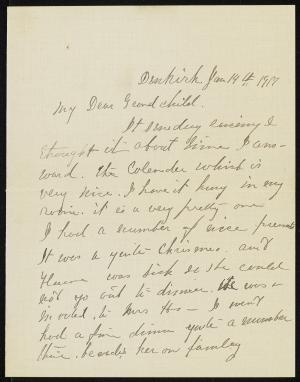 Dunkirk, Jan 14th 1917
My Dear Grandchild.
It
thought it about time I ans-
ward. the Calender which is
very nice. I have it hung in my
room. it is a very pretty one
I had a number of nice presents
It was a quite Chrismes. and
was sick so she could
not go out to dinner. We was
invited to Mrs I went
had a fine dinner quite a number
there, besides her own famley